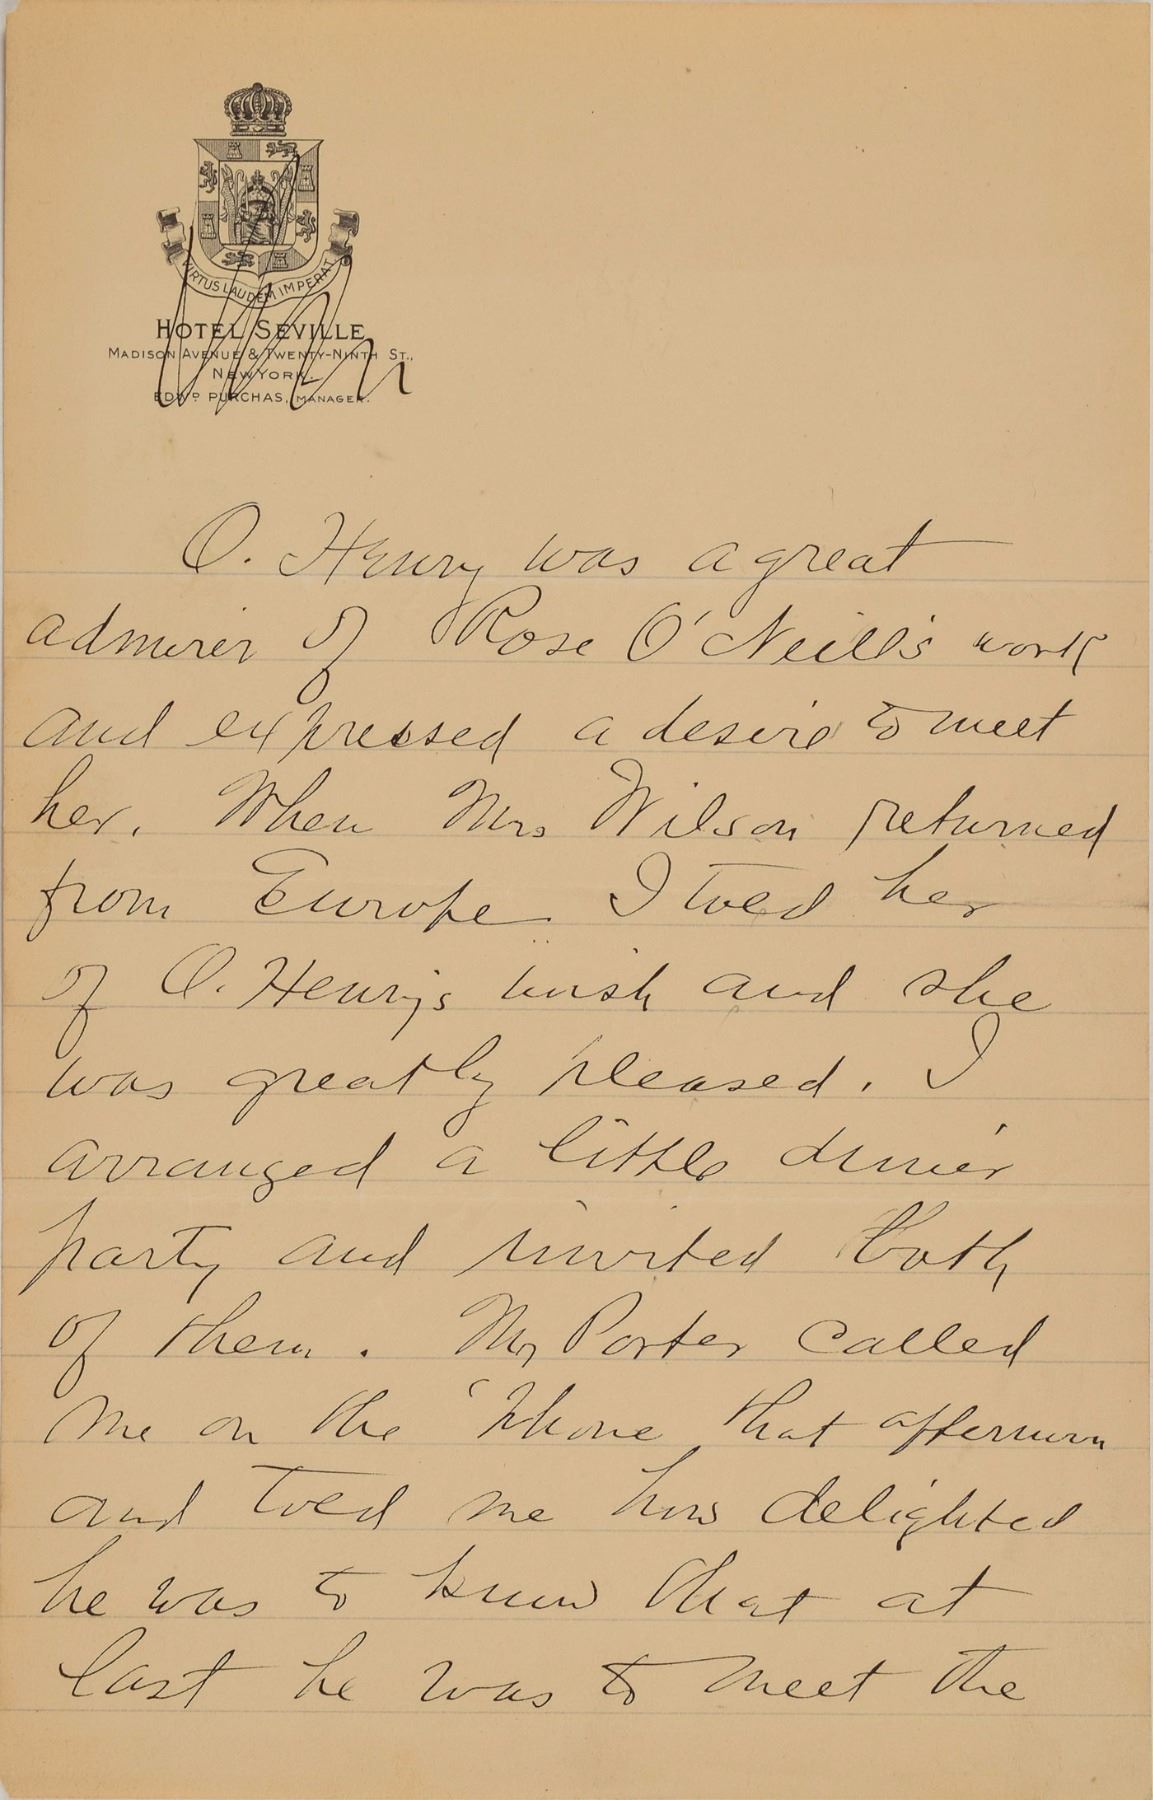 VIRTUS LAUDEM IMPERAT
HOTEL SEVILLE
MADISON AVENUE & TWENTY-NINTH ST.,
NEW YORK.
EDWD PURCHAS, MANAGER.
O. Henry was a great
admirer of Rose O'Neill's work
and expressed a desire to meet
her. When Mrs Wilson returned
from Europe I told her
of O. Henry's wish and she
was greatly pleased. I
arranged a little dinner
party and invited both
of them. Mr Porter called
me on the 'phone that afternoon
and told me how delighted
he was to know that at
last he was to meet the